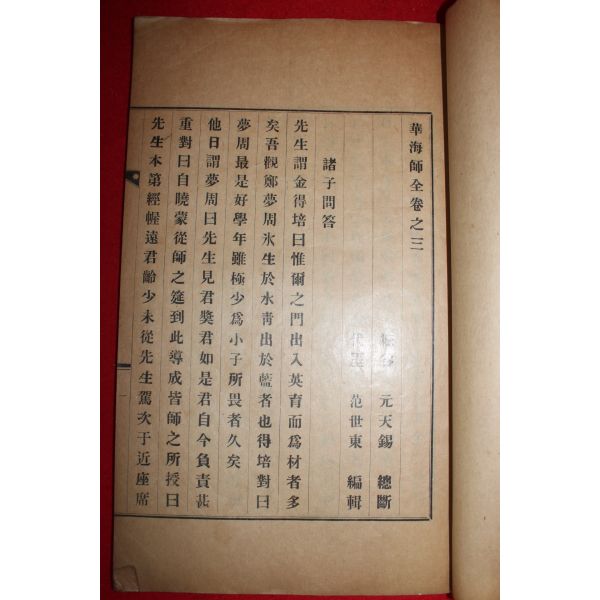 華海師全卷之三
元天錫 總斷
范世東 編輯
諸子問答
先生謂金得培曰惟爾之門出入英育而爲材者多
矣吾觀鄭夢周氷生於水靑出於藍者也得培對曰
夢周最是好學年雖極少爲小子所畏者久矣
他日謂夢周曰先生見君奬君如是君自今負責甚
重對曰自曉蒙從師之筵到此導成皆師之所授曰
先生本第經幄遠君齡少未從先生駕次于近座席